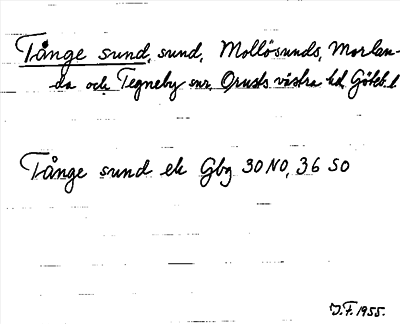 Tånge sund, sund, Mollösunds, Morlan-
da och Tegneby snr, Orusts västra hd, Göteb. l
Tånge sund ek Gbg 30 NO, 36 SO
J.F. 1955.